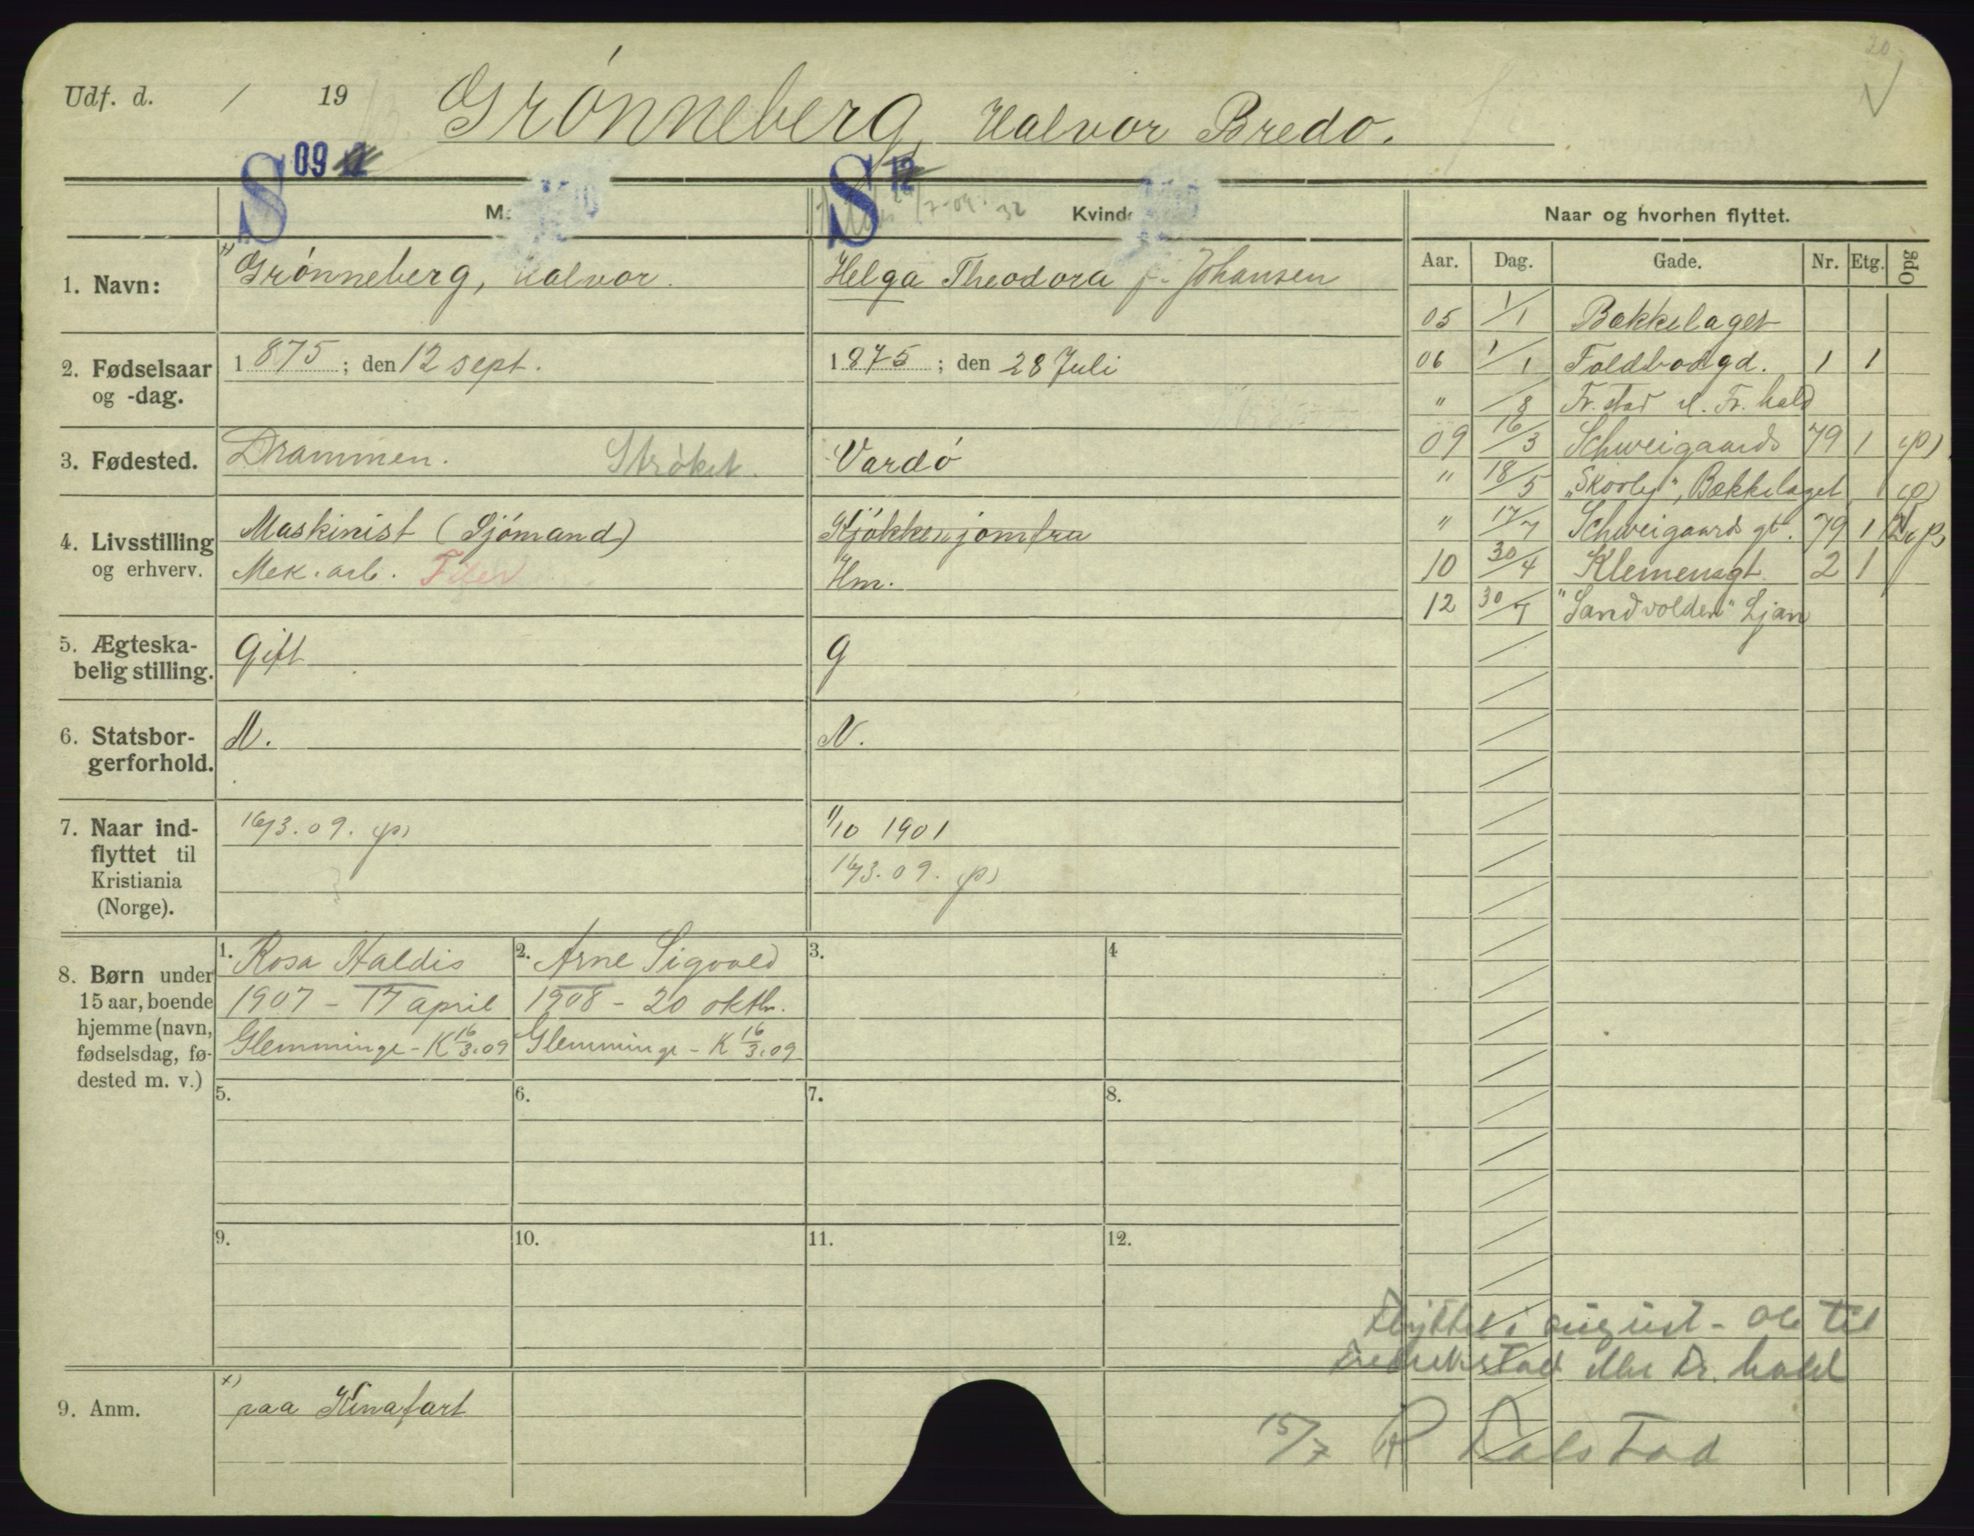 Udf. d. / 19 Grønneberg, Halvor Bredo.
S 09 S 12
Kvinde
Naar og hvorhen flyttet.
Aar. Dag. Gade. Nr. Etg. Opg
1. Navn: x) Grønneberg, Halvor. Helga Theodora f. Johansen
2. Fødselsaar og -dag. 1875; den 12 sept. 1875; den 28 Juli
3. Fødested. Drammen. Strøket. Vardø
4. Livsstilling og erhverv. Maskinist (Sjømand) Kjøkkenjomfru
Mek. arb. Filer Hm.
5. Ægteskabelig stilling. Gift g
6. Statsborgerforhold. N. N.
7. Naar indflyttet til Kristiania (Norge). 16/3.09. (p) 1/10 1901
16/3.09. (p)
05 1/1 Bækkelaget
06 1/1 Toldbodgd. 1 1
" /8 Fr.stad el. Fr.hald
09 16/3 Schweigaards 79 1 (p)
" 18/5 "Skovly", Bækkelaget (p)
" 17/7 Schweigaards gt. 79 1
10 30/4 Klemensgt. 2 1
12 30/7 "Sandvolden" Ljan
8. Børn under 15 aar, boende hjemme (navn, fødselsdag, fødested m. v.)
1. Rosa Haldis
1907 - 17 april
Glemminge - K 16/3.09
2. Arne Sigvald
1908 - 20 oktbr.
Glemminge - K 16/3.09
3.
4
5.
6.
7.
8.
9.
10.
11.
12.
Flyttet i august - 06 til
Fredrikstad eller Fr. hald
15/7 R Falstad
9. Anm. x) paa Kinafart